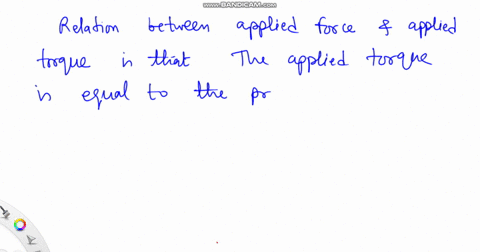 WWW.BANDICAM.COM
Relation between applied force & applied
torque is that The applied torque
is equal to the pr